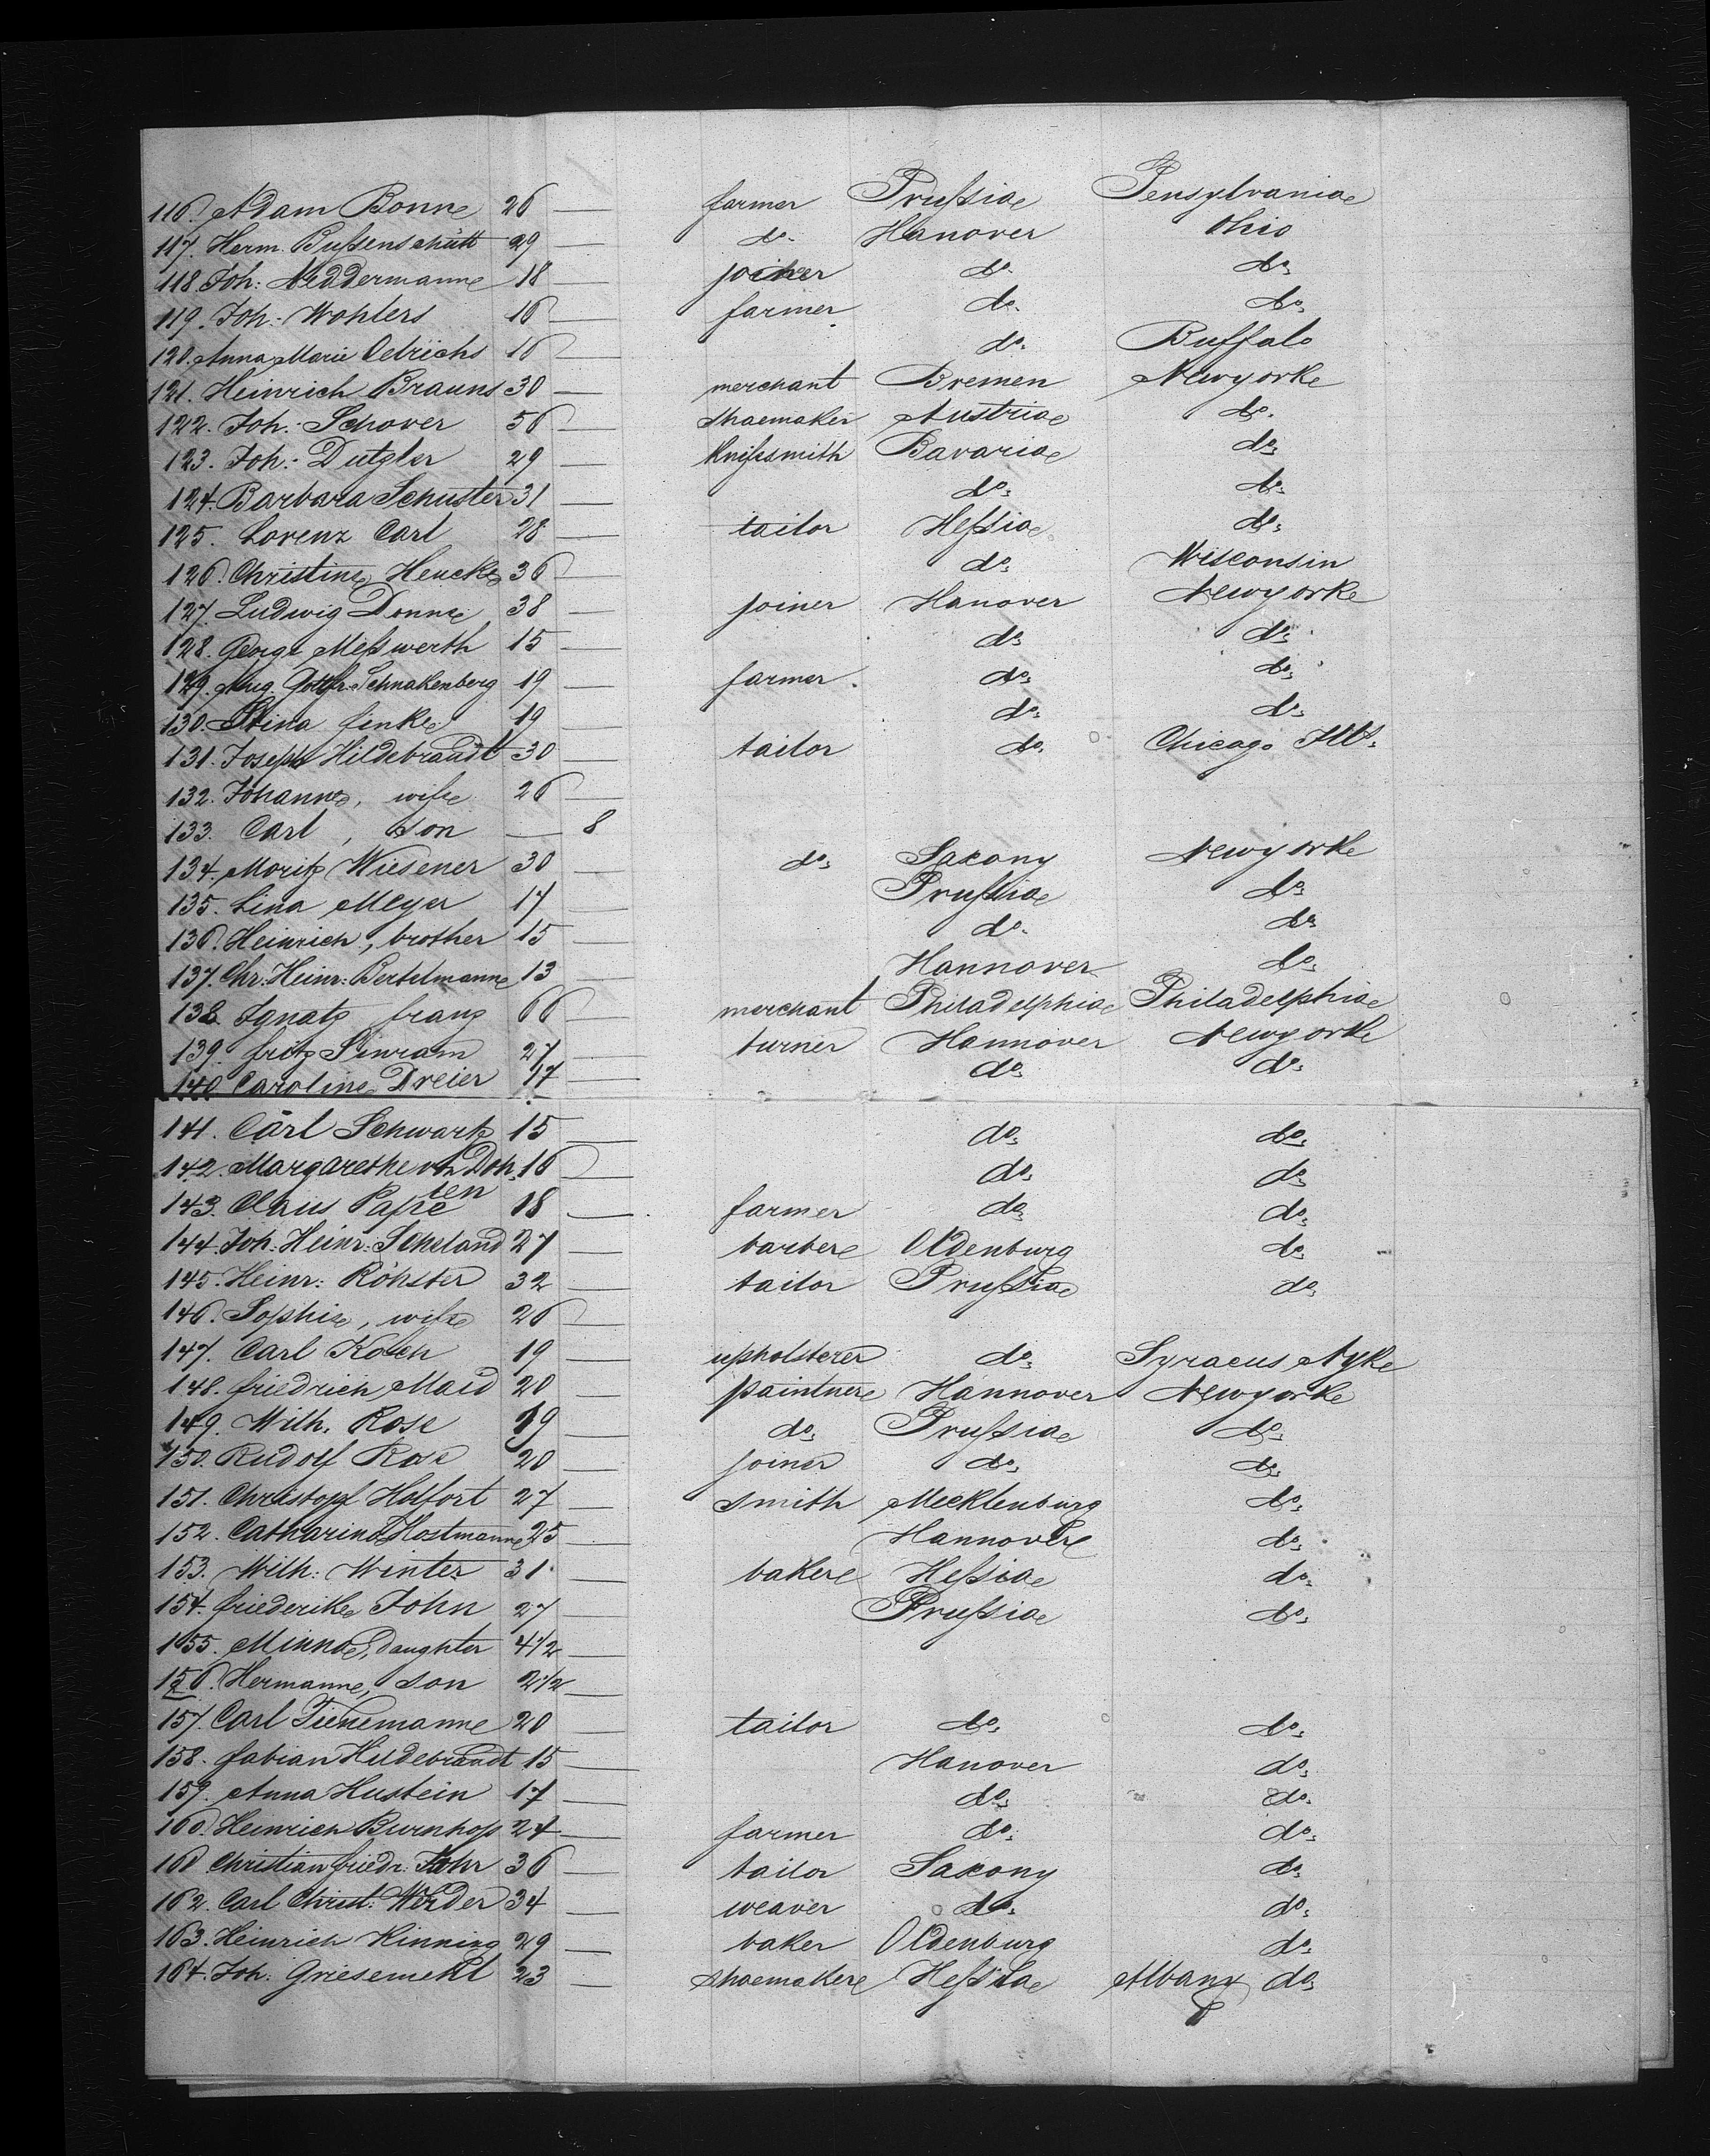 116. Adam Bonne 26 — farmer Prußia Pensylvania
117. Herm. Bußenschütt 29 — do. Hanover Ohio
118. Joh: Neddermann 18 — joiner do. do.
119. Joh: Wohlers 16 — farmer do. do.
120. Anna Marie Oelrichs 16 — do. Buffalo
121. Heinrich Brauns 30 — merchant Bremen Newyork
122. Joh: Schover 56 — shoemaker Austria do.
123. Joh: Dutzler 29 — Knifesmith Bavaria do.
124. Barbara Schuster 31 — do. do.
125. Lorenz Carl 28 — tailor Heßia do.
126. Christine Heucke 36 — do. Wisconsin
127. Ludwig Donne 38 — joiner Hanover Newyork
128. George Meßwerth 15 — do. do.
129. Aug. Gottfr. Schnakenberg 19 — farmer do. do.
130. Stina finke 19 — do. do.
131. Joseph Hildebrandt 30 — tailor do. Chicago Ills.
132. Johanne, wife 26 —
133. Carl, son — 8
134. Moritz Wiesener 30 — do. Saxony Newyork
135. Lina Meyer 17 — Prußia do.
136. Heinrich, brother 15 — do. do.
137. Chr: Heinr: Bertelmann 13 — Hannover do.
138. Ignatz franz 66 — merchant Philadelphia Philadelphia
139. fritz Sinram 27 — turner Hannover Newyork
140. Caroline Dreier 17 — do. do.
141. Carl Schwartz 15 — do. do.
142. Margarethe von Doh 16 — do. do.
ten
143. Claus Pape 18 — farmer do. do.
144. Joh: Heinr: Scheland 27 — barber Oldenburg do.
145. Heinr: Röhster 32 — tailor Prußia do.
146. Sophie, wife 26 —
147. Carl Koch 19 — upholsterer do. Syracus Nyk
148. friedrich Maid 20 — paintner Hannover Newyork
149. Wilh. Rose 19 — do. Prußia do.
150. Rudolf Rose 20 — joiner do. do.
151. Christopf Helfort 27 — smith Mecklenburg do.
152. Catharine Hostmann 25 — Hannover do.
153. Wilh: Winter 31 — baker Heßia do.
154. friederike John 27 — Prußia do.
155. Minna, Daughter 4 1/2 —
156. Hermann, son 2 1/2 —
157. Carl Tienemann 20 — tailor do. do.
158. fabian Hildebrandt 15 — Hanover do.
159. Anna Hustein 17 — do. do.
160. Heinrich Burnhop 24 — farmer do. do.
161 Christian friedr. 36 — tailor Saxony do.
162. Carl Christ: 34 — weaver do. do.
163. Heinrich Hinning 29 — baker Oldenburg do.
164. Joh: Griesemehl 23 — shoemaker Heßia Albany do.